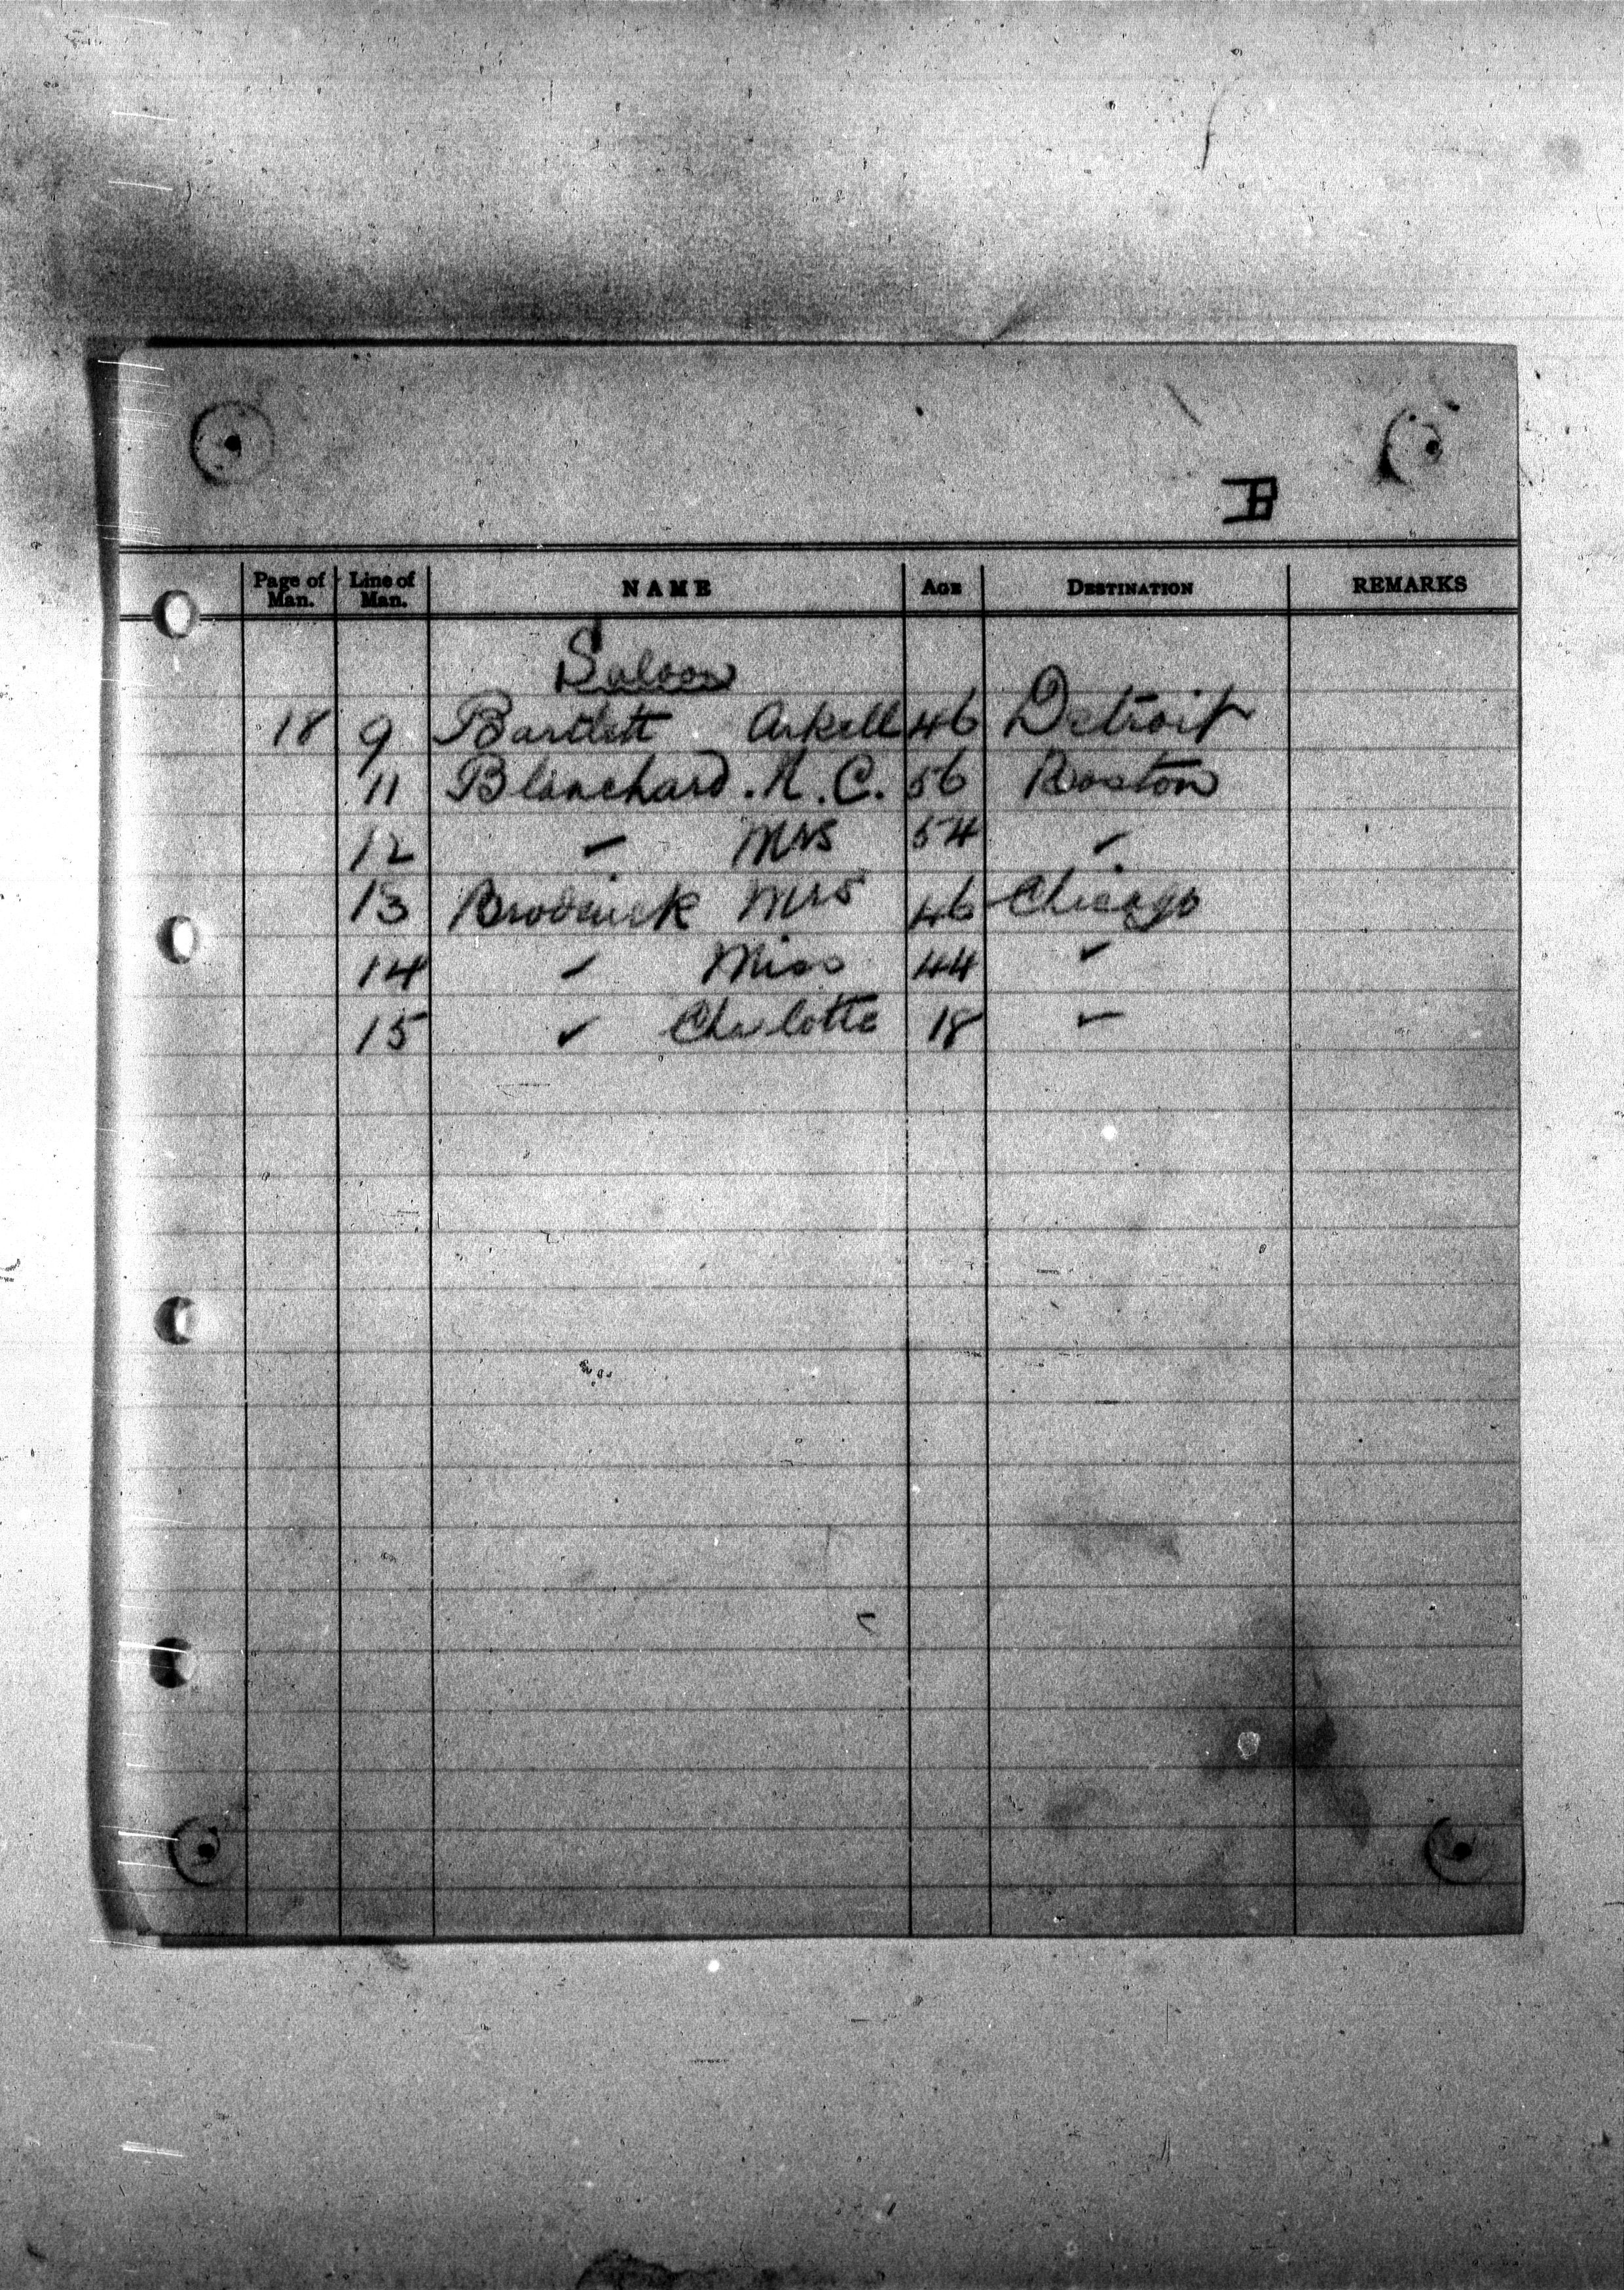 B
Page of Man. Line of Man. NAME AGE DESTINATION REMARKS
Saloon
18 9 Bartlett Arkell 46 Detroit
11 Blanchard. N. C. 56 Boston
12 " Mrs 54 "
13 Broderick Mrs 46 Chicago
14 " Miss 44 "
15 " Charlotte 18 "